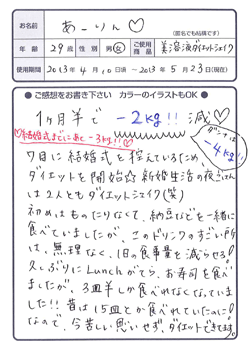 お名前 あーりん♡
(匿名でも結構です)
年齢 29歳 性別 男・女 ご使用商品 美溶液ダイエットシェイク
使用期間 2013年4月10日頃 〜 2013年5月23日(現在)
● ご感想をお書き下さい カラーのイラストもOK ●
1ヶ月半で -2kg!! 減♡
♡結婚式までにあと-3kg!!♡
ダンナは -4kg!!
7月に結婚式を控えているため
ダイエットを開始☆ 新婚生活の夜ごはん
は2人ともダイエットシェイク(笑)
初めはものたりなくて、納豆などを一緒に
食べていましたが、このドリンクのすごい所
は、無理なく、1日の食事量を減らせる!
久しぶりにLunchがてら、お寿司を食べ
ましたが、3皿しか食べれなくなっていま
した!! 昔は15皿とか食べれていたのに!
なので、今苦しい思いせず、ダイエットできてます。